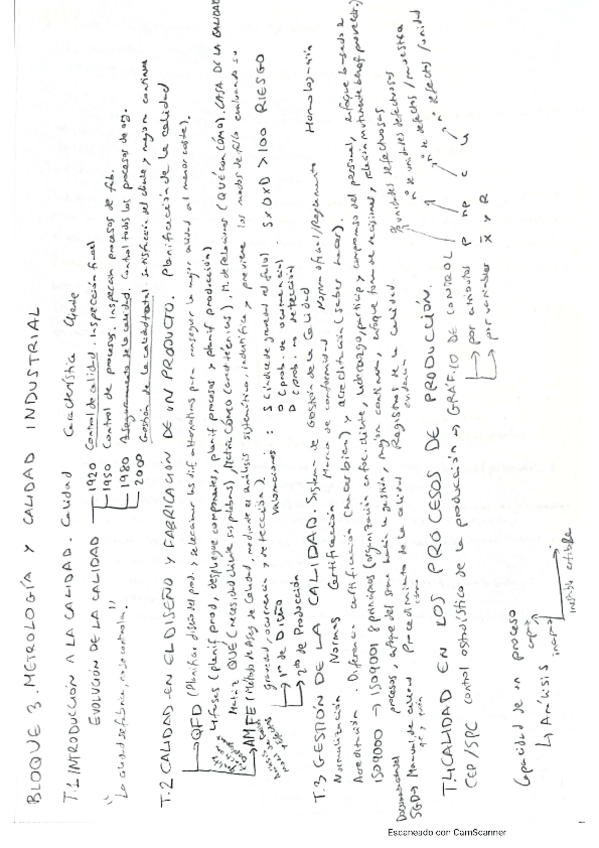 BLOQUE 3. METROLOGÍA Y CALIDAD INDUSTRIAL
T.1 INTRODUCCIÓN A LA CALIDAD. Calidad Característica Cliente
EVOLUCIÓN DE LA CALIDAD
1920 Control de calidad. Inspección final
1950 Control de procesos. inspección procesos de fab.
1980 Aseguramiento de la calidad. Control todos los procesos de org.
2000 Gestión de la calidad total. satisfacción del cliente y mejora continua
"La calidad se fabrica, no se controla."
T.2 CALIDAD EN EL DISEÑO Y FABRICACIÓN DE UN PRODUCTO. Planificación de la calidad
QFD (Planificar diseño del prod. y seleccionar las dif. alternativas para conseguir la mejor calidad al menor coste).
4 fases (planif prod, despliegue componentes, planif procesos y planif producción)
Matriz QUÉ (neces. del cliente sus palabras), Matriz CÓMO (caract técnicas), M. de Relaciones (QUÉ con CÓMO). CASA DE LA CALIDAD
AMFE (Método de Aseg de Calidad, mediante el análisis sistemático, identifica y previene los modos de fallo evaluando su
gravedad, ocurrencia y detección).
valoraciones: S (índice de gravedad del fallo) S x O x D > 100 RIESGO
O (prob. de ocurrencia)
D (prob. no detección)
1º de Diseño
2º de Producción
T.3 GESTIÓN DE LA CALIDAD. Sistema de Gestión de la Calidad
Normalización Normas Certificación Marca de conformidad Norma oficial/Reglamento Homologación
Acreditación. Diferencia certificación (hacer bien) y acreditación (saber hacer).
ISO 9000 → ISO 9001 8 principios (organización enfoc. cliente, liderazgo, particip y compromiso del personal, enfoque basado a
procesos, enfoque del sistema hacia la gestión, mejora continua, enfoque toma de decisiones, relación mutuamente benef proveedor)
SGD → Manual de calidad Procedimiento de la calidad Registros de la calidad
qué y quién cómo evidencia
T.4 CALIDAD EN LOS PROCESOS DE PRODUCCIÓN.
CEP/SPC control estadístico de la producción → GRÁFICO DE CONTROL
por atributos p np c u
por variables X̄ y R
nº de unidades defectuosas
nº de defectos/muestra
nº defectos/unidad
Capacidad de un proceso
Análisis
capaz
incapaz
inestable estable
Escaneado con CamScanner